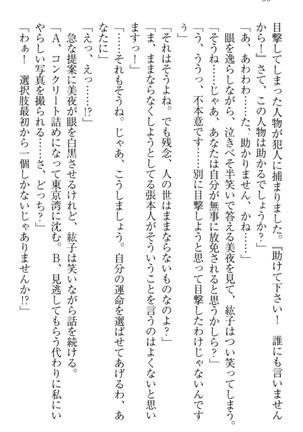 目撃してしまった人物が犯人に捕まりました。『助けて下さい！　誰にも言いません
から！』さて、この人物は助かるでしょうか？」
「あ、あわわ……た、助かりません、かね……」
眼を逸らしながら、泣きべそ半笑いで答える美夜を見て、紘子はつい笑ってしまう。
「そうね……じゃあ、あなたは自分が無事に放免されると思う？」
「う、ううっ、不本意です……別に目撃しようと思って目撃したわけじゃないんです
から……」
「それはそうよね。でも残念、人の世はままならないものなのよ？」
「ま、ままならなくしようとしてる張本人がそういうことを言うのはよくないと思い
ますっ！」
「……それもそうね。じゃあ、こうしましょう。自分の運命を選ばせてあげるわ、あ
なたに」
「えっ、えっ……!?」
急な提案に美夜が眼を白黒させるけれど、紘子は笑いながら話を続ける。
「A、コンクリート詰めになって東京湾に沈む。B、見逃してもらう代わりに私にい
やらしい写真を撮られる……さ、どっち？」
「わぁ！　選択肢最初から一個しかないじゃありませんか!?」